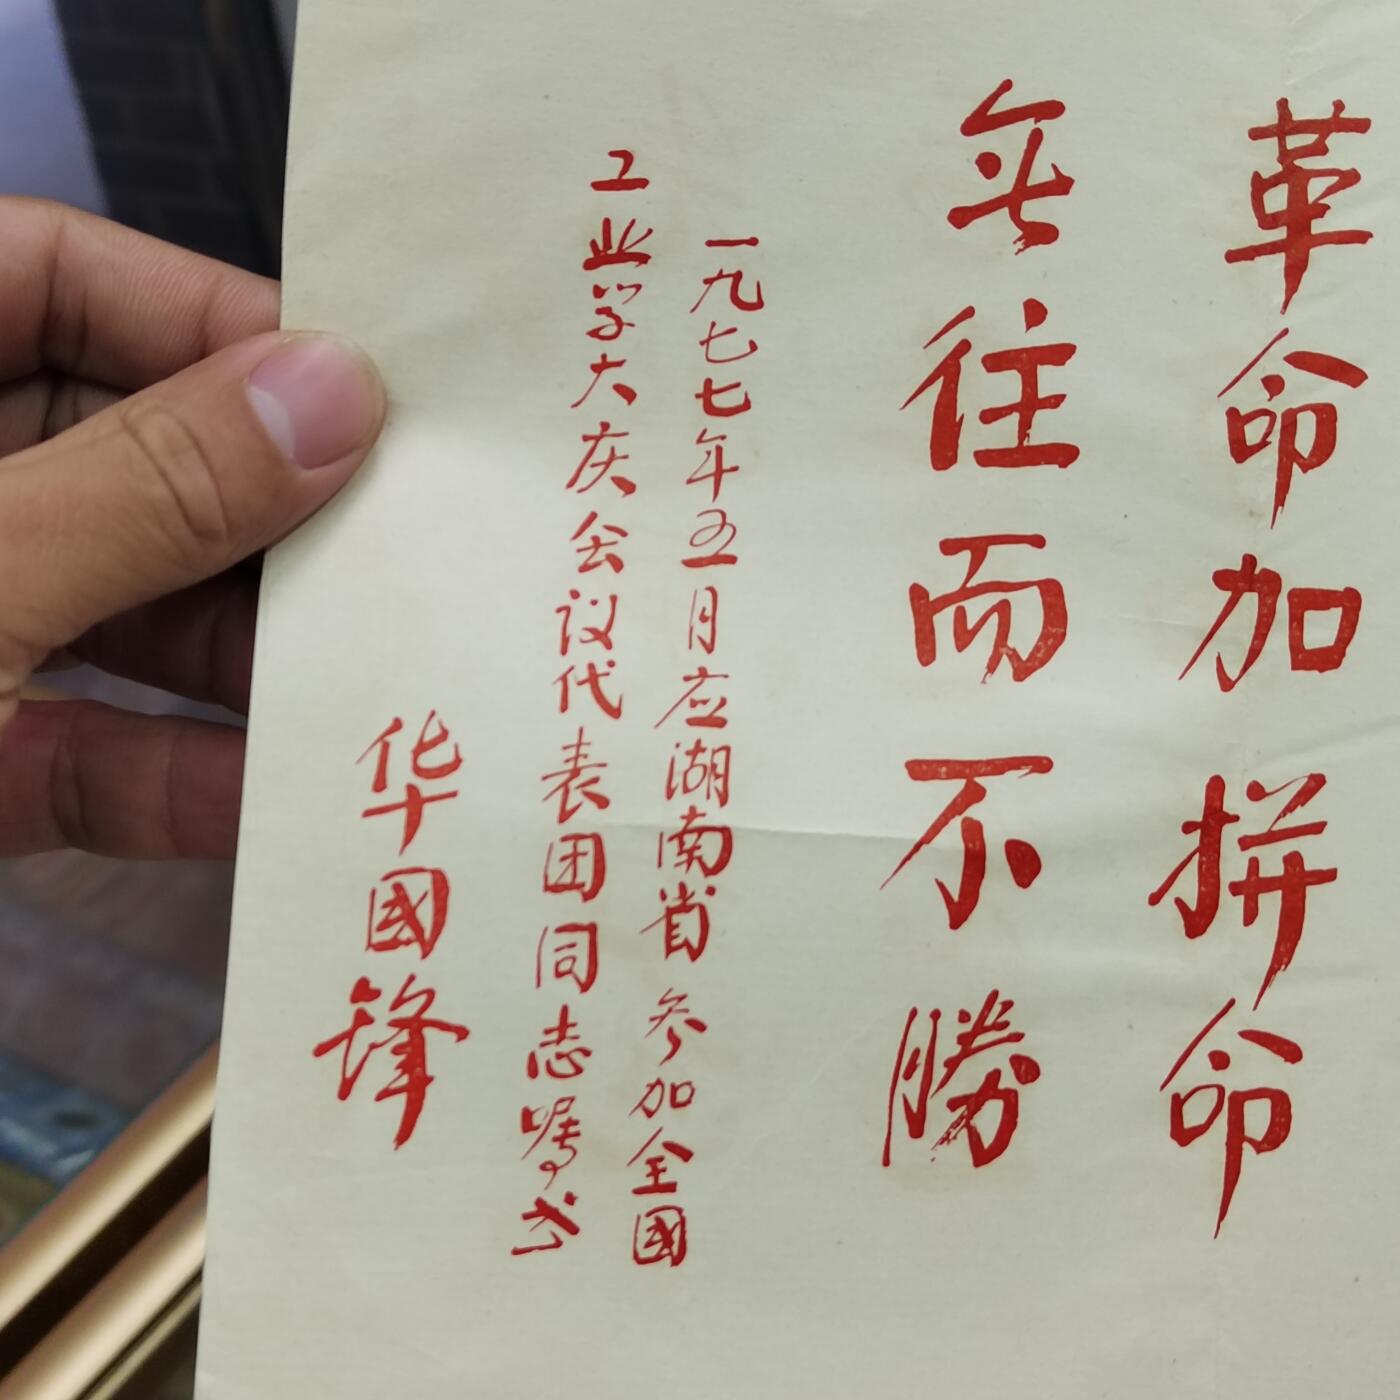 革命加拼命
无往而不勝
一九七七年五月应湖南省参加全國
工业学大庆会议代表团同志嘱书
华國锋